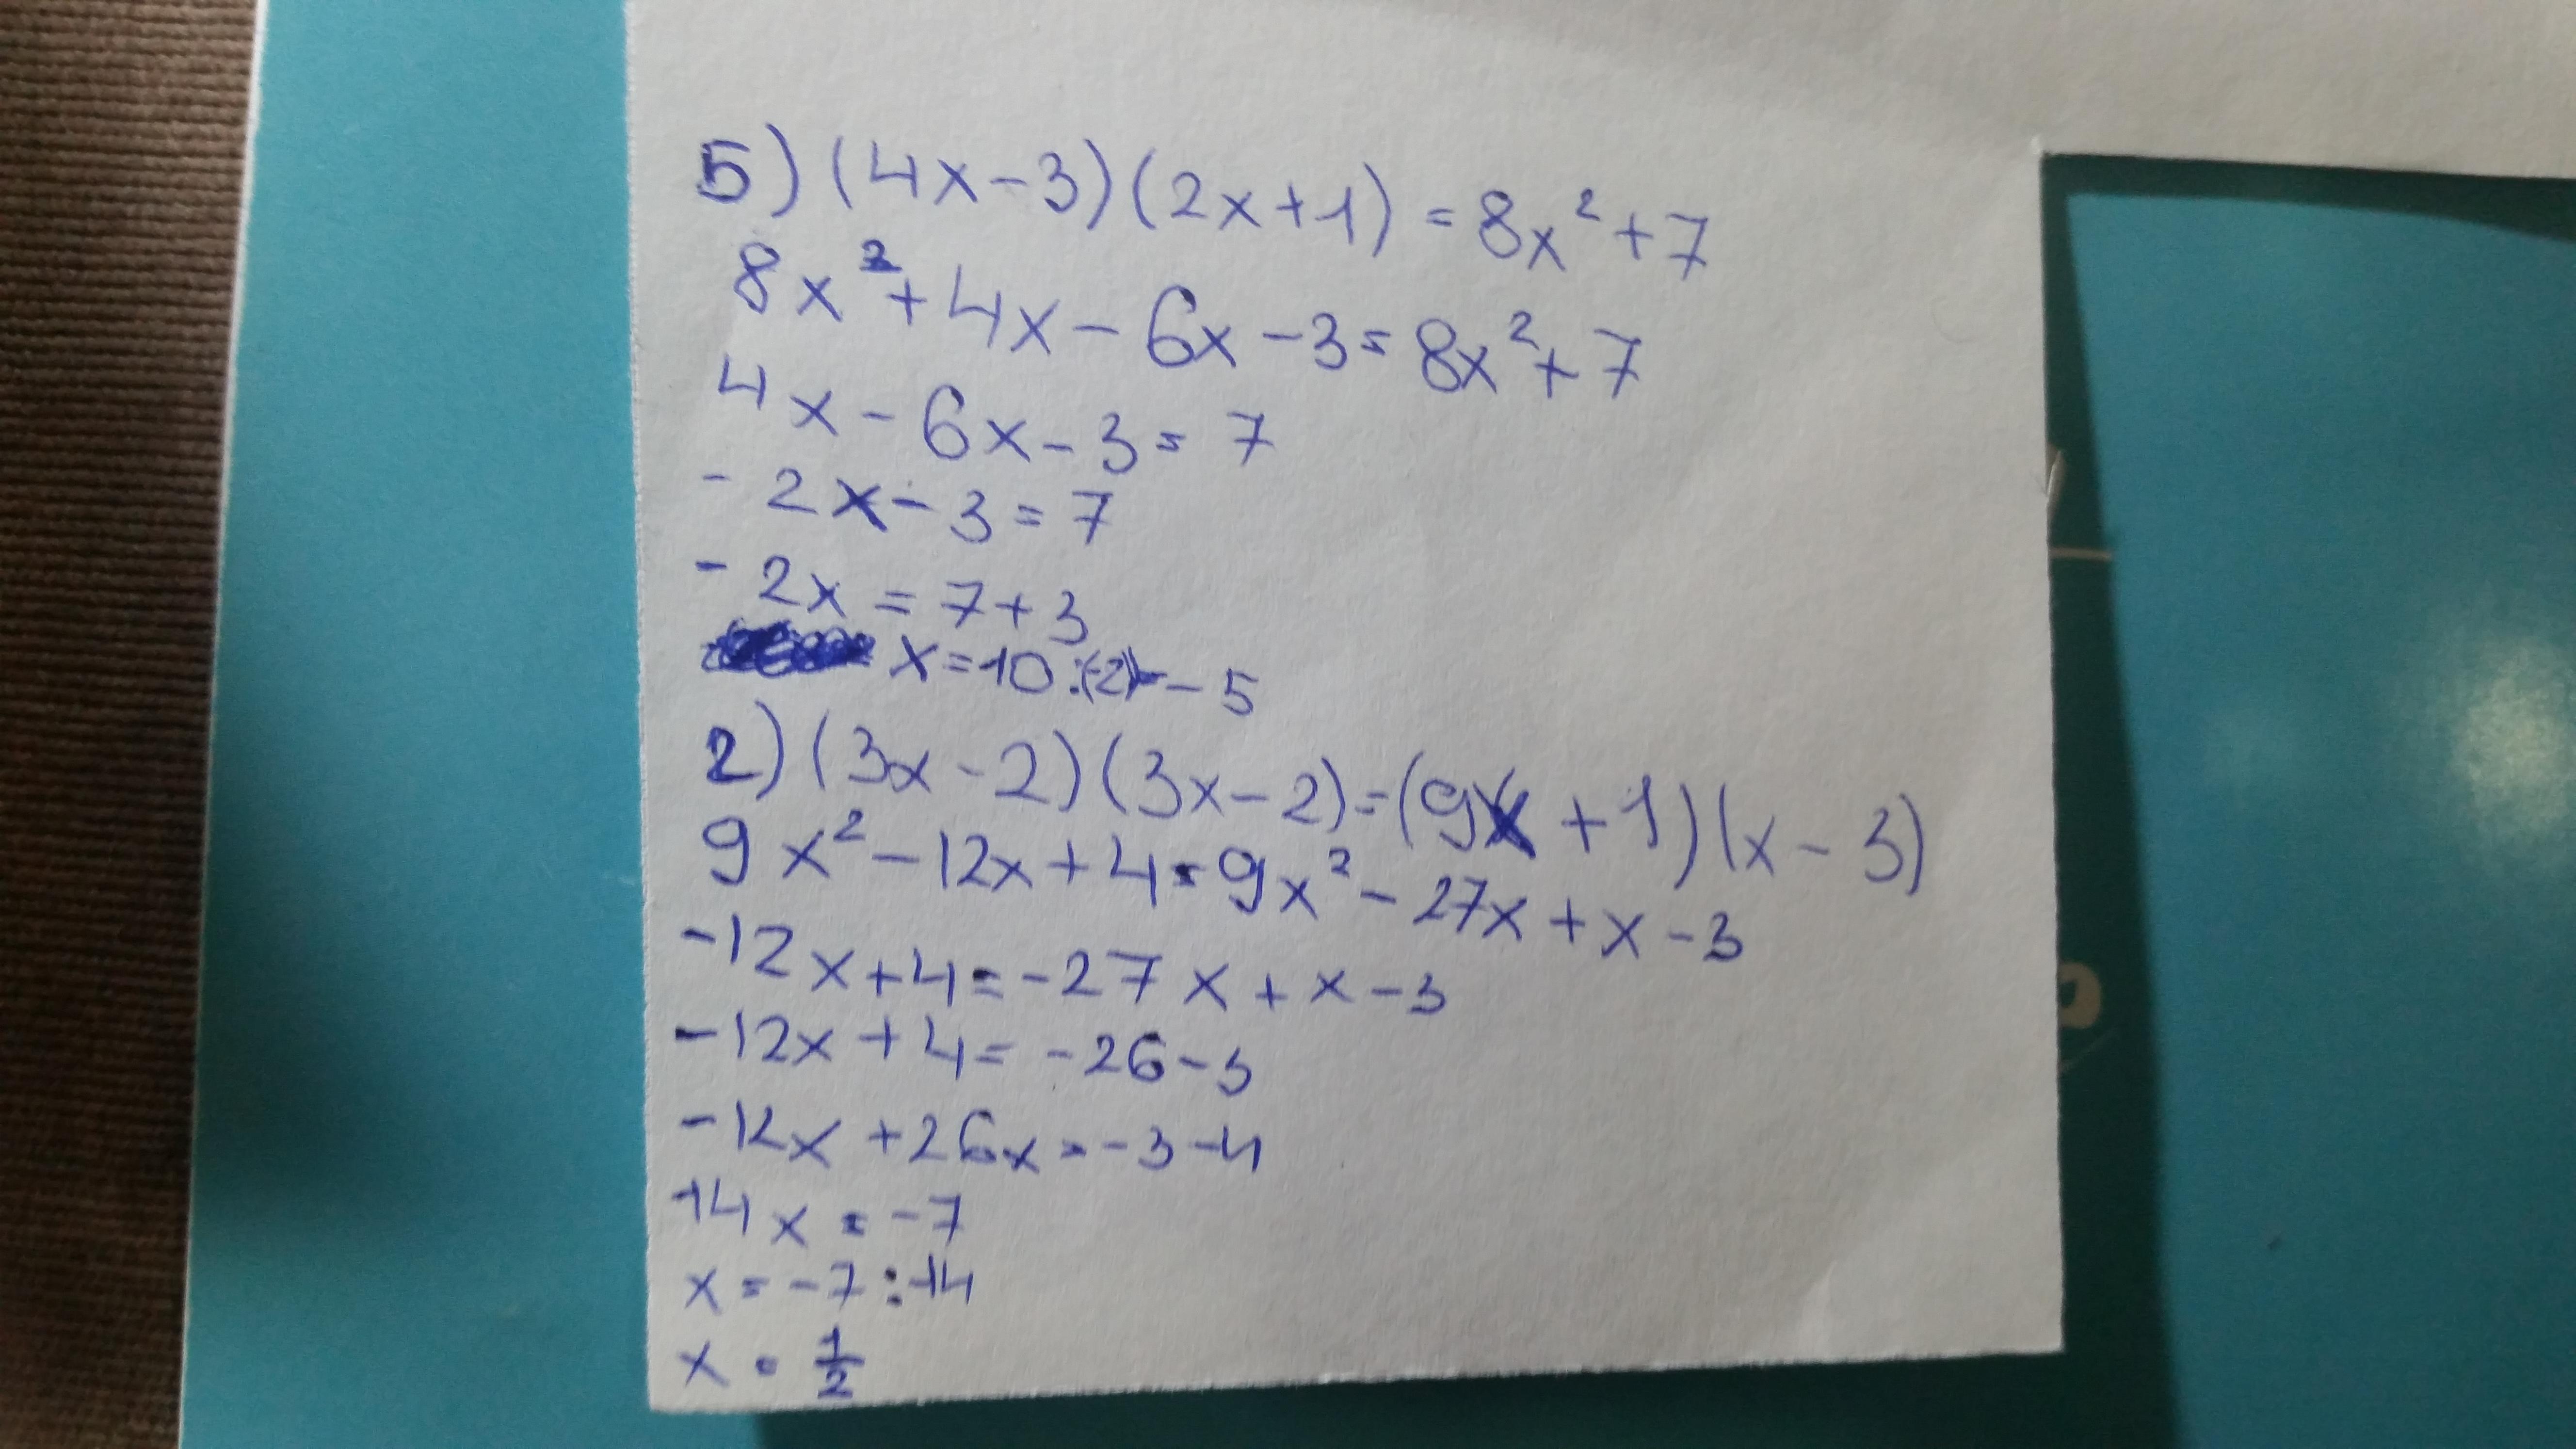 5) (4x-3)(2x+1) = 8x²+7
8x²+4x-6x-3=8x²+7
4x-6x-3=7
-2x-3=7
-2x=7+3
x=10:(-2)=-5
2) (3x-2)(3x-2)=(9x+1)(x-3)
9x²-12x+4=9x²-27x+x-3
-12x+4=-27x+x-3
-12x+4=-26-3
-12x+26x=-3-4
14x=-7
x=-7:14
x=1/2